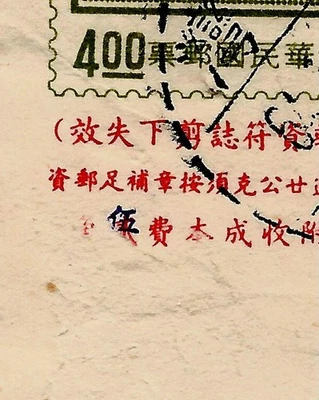 4.00 華民國郵票
資符誌剪下失效)
廿公克須按章補足郵資
附收成本費 伍